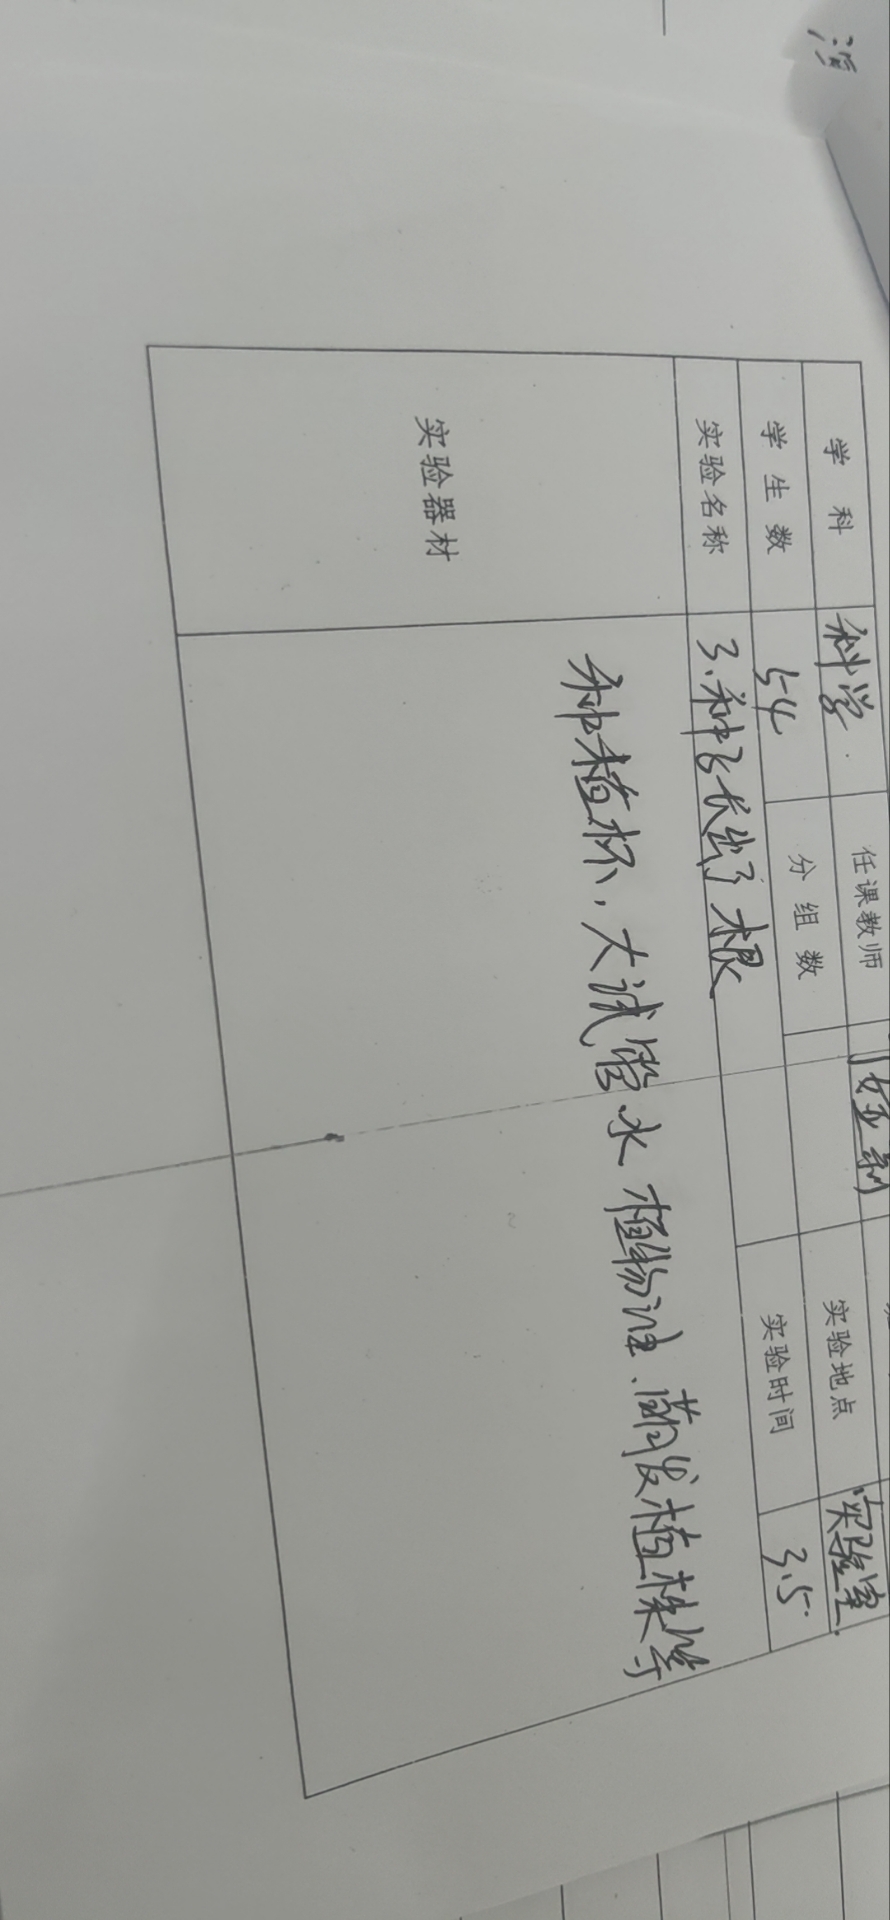 学 科 科学 任课教师 实验地点 实验室
学 生 数 54 分 组 数 实验时间 3.5
实验名称 3.种子长出了根
实验器材 种植杯，大试管 水 植物油、萌发植株等